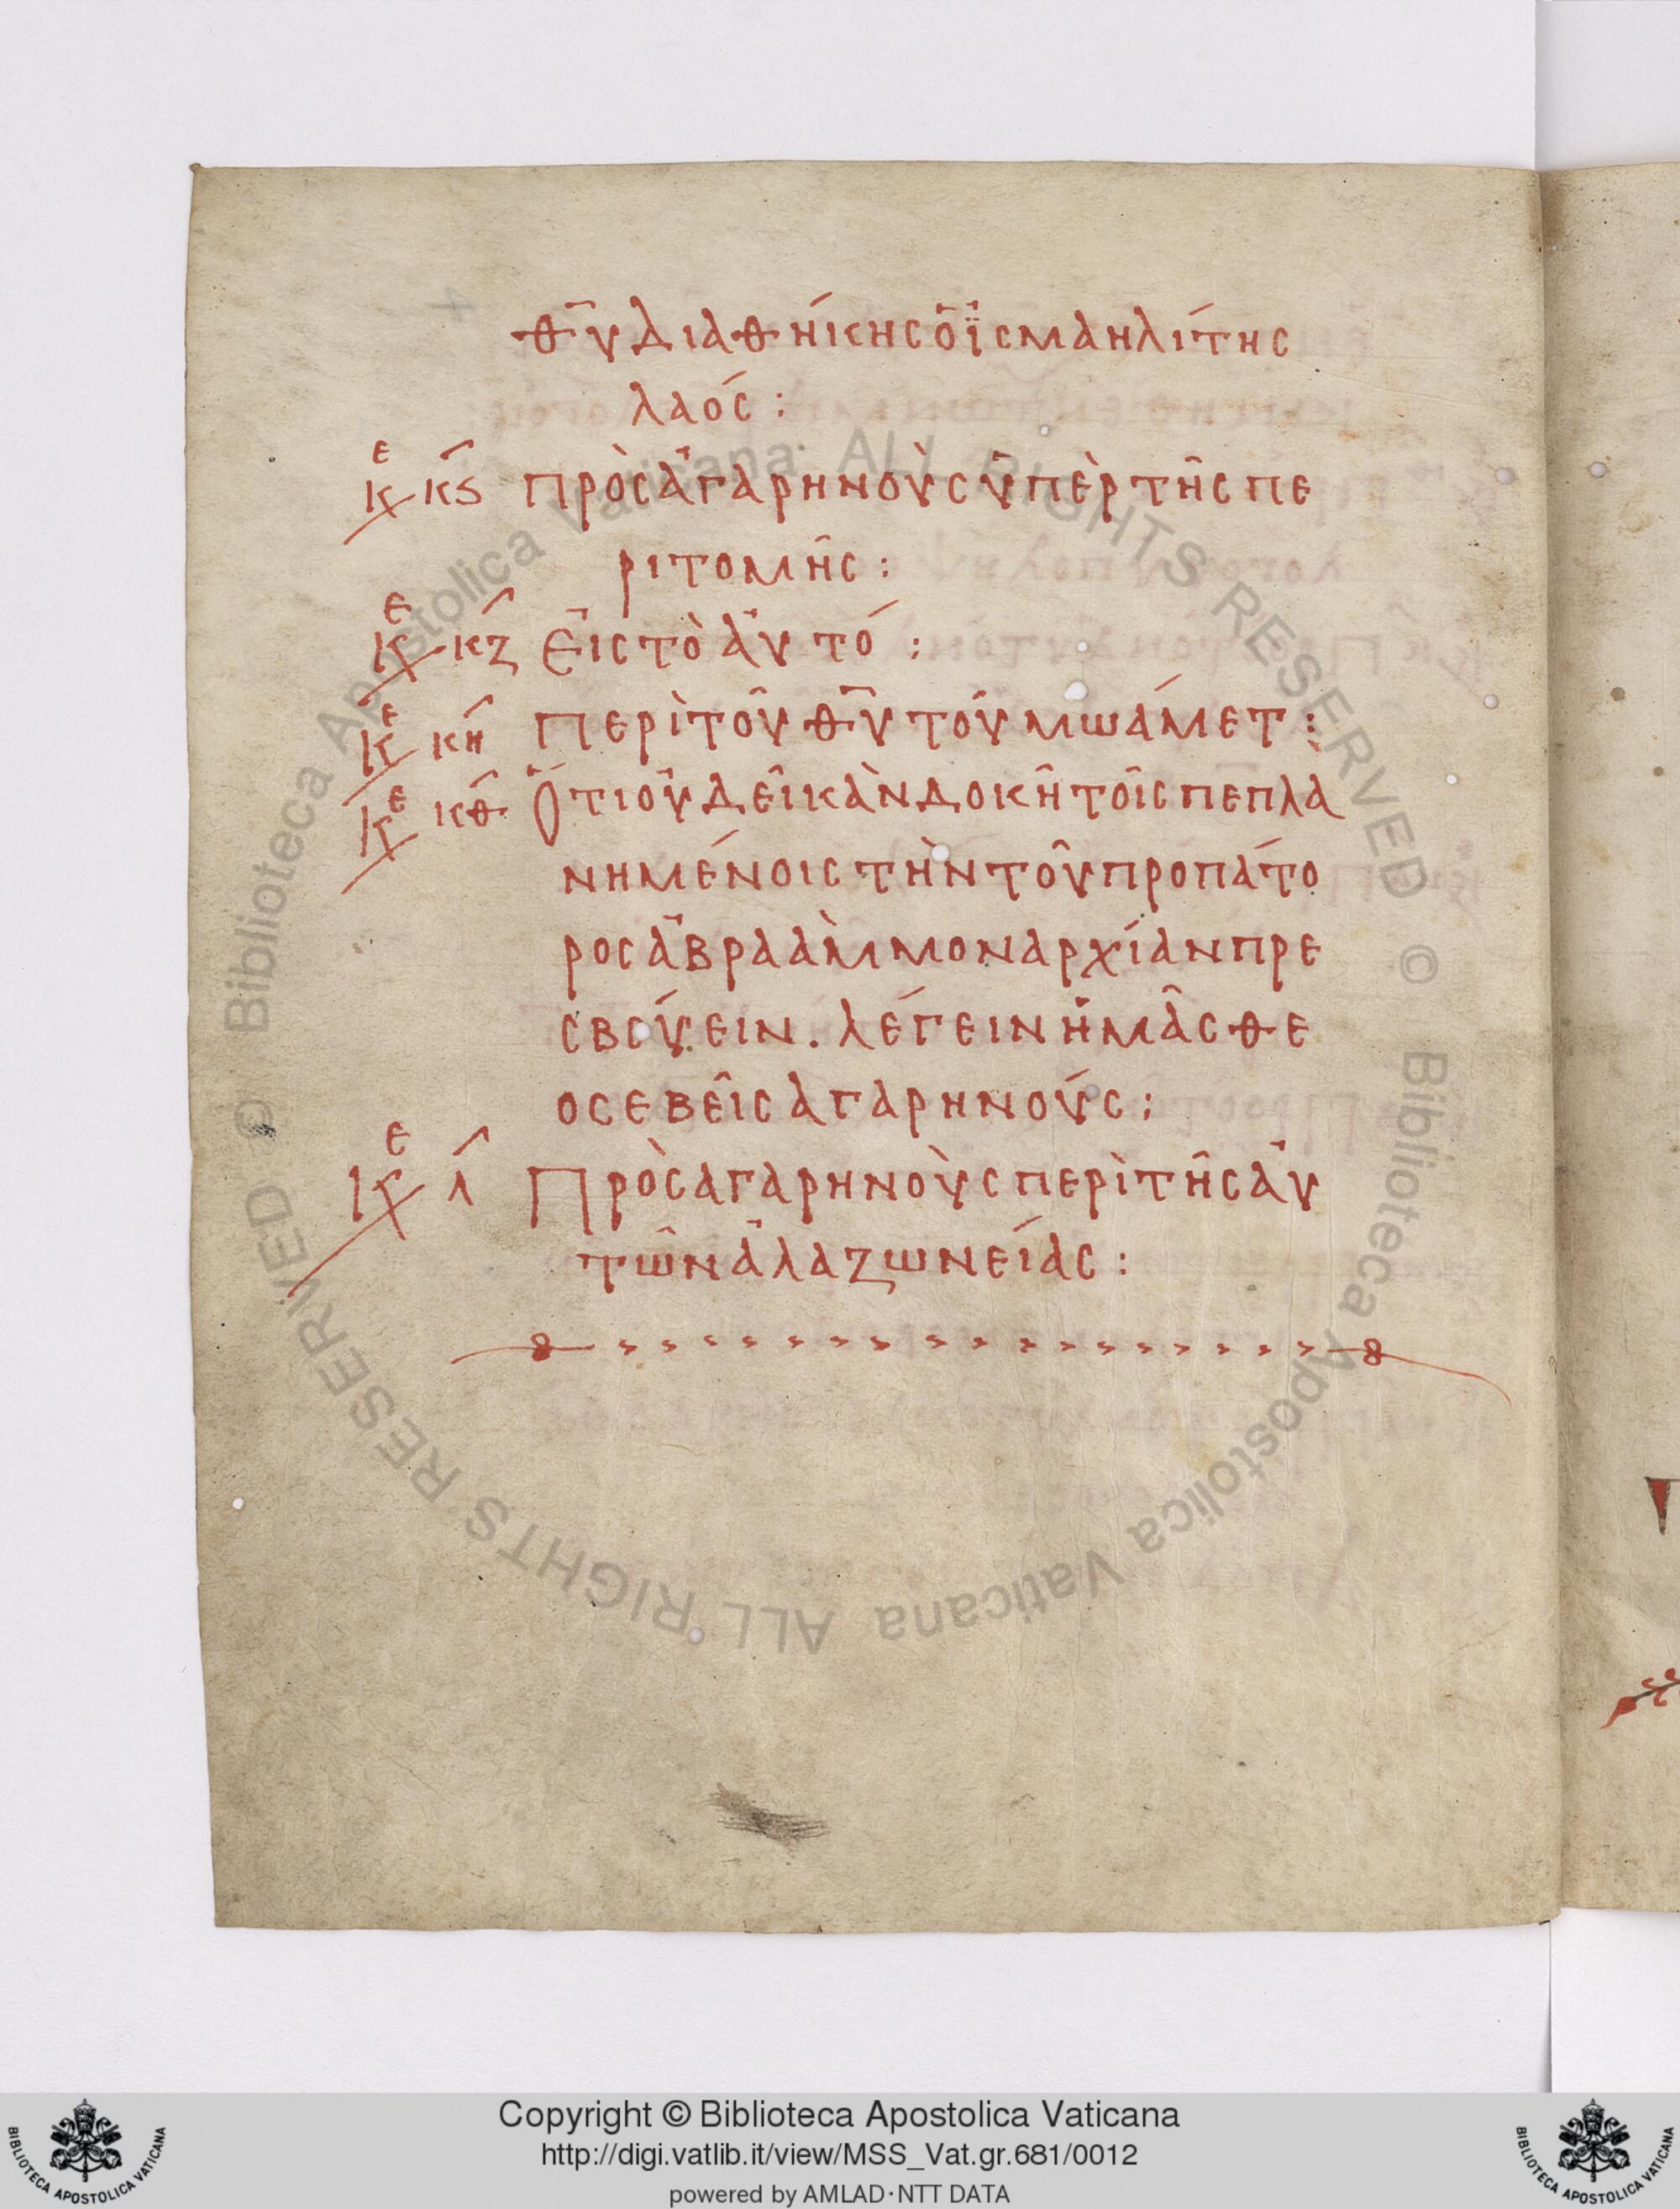 θῡ διαθήκης ὁ ἰ̈σμαηλίτης
λαός :
κε κϛ πρὸς ἀγαρηνοὺς ὑπὲρ τῆς πε
ριτομῆς :
κε κζ Εἰς τὸ ἀυτό :
κε κη Περὶ τοῦ θῡ τοῦ μωάμετ :
κε κθ Ὅτι οὐ δεῖ κὰν δοκῆ τοῖς πεπλα
νημένοις τὴν τοῦ προπάτο
ρος ἀβραὰμ μοναρχίαν πρε
σβεύειν . λέγειν ἡμᾶς θε
οσεβεῖς αγαρηνούς :
κε λ Πρὸς αγαρηνοὺς περὶ τῆς ἀυ
τῶν ἀλαζωνείας :
© Biblioteca Apostolica Vaticana ALL RIGHTS RESERVED © Biblioteca Apostolica Vaticana ALL RIGHTS RESERVED
Copyright © Biblioteca Apostolica Vaticana
http://digi.vatlib.it/view/MSS_Vat.gr.681/0012
powered by AMLAD·NTT DATA
BIBLIOTECA APOSTOLICA VATICANA
BIBLIOTECA APOSTOLICA VATICANA